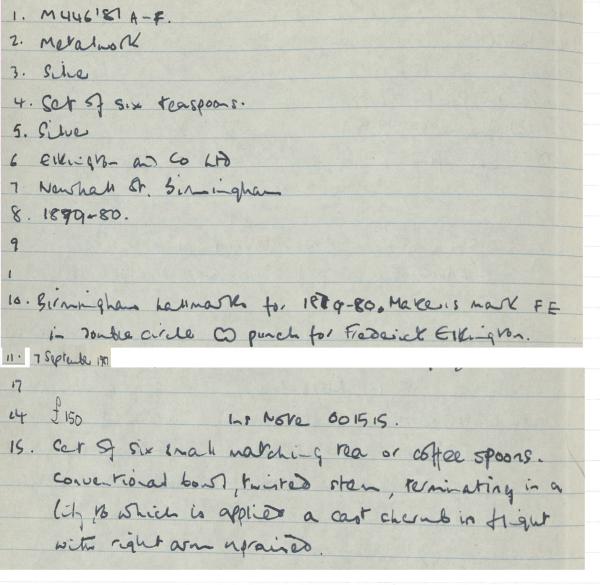 1. M446'81 A-F.
2. Metalwork
3. Silver
4. Set of six teaspoons.
5. Silver
6 Elkington and Co Ltd
7 Newhall St. Birmingham
8. 1879-80.
9
1
10. Birmingham hallmarks for 1879-80. Makers mark FE
in double circle punch for Frederick Elkington.
11. 7 September
17
14 £150 Ins Note 001515.
15. Set of six small matching tea or coffee spoons.
Conventional bowl, twisted stem, terminating in a
lily, to which is applied a cast cherub in flight
with right arm upraised.